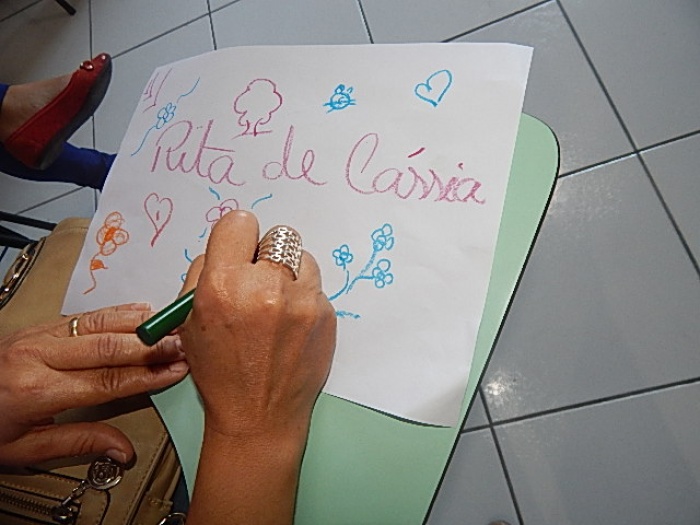 Rita de Cássia